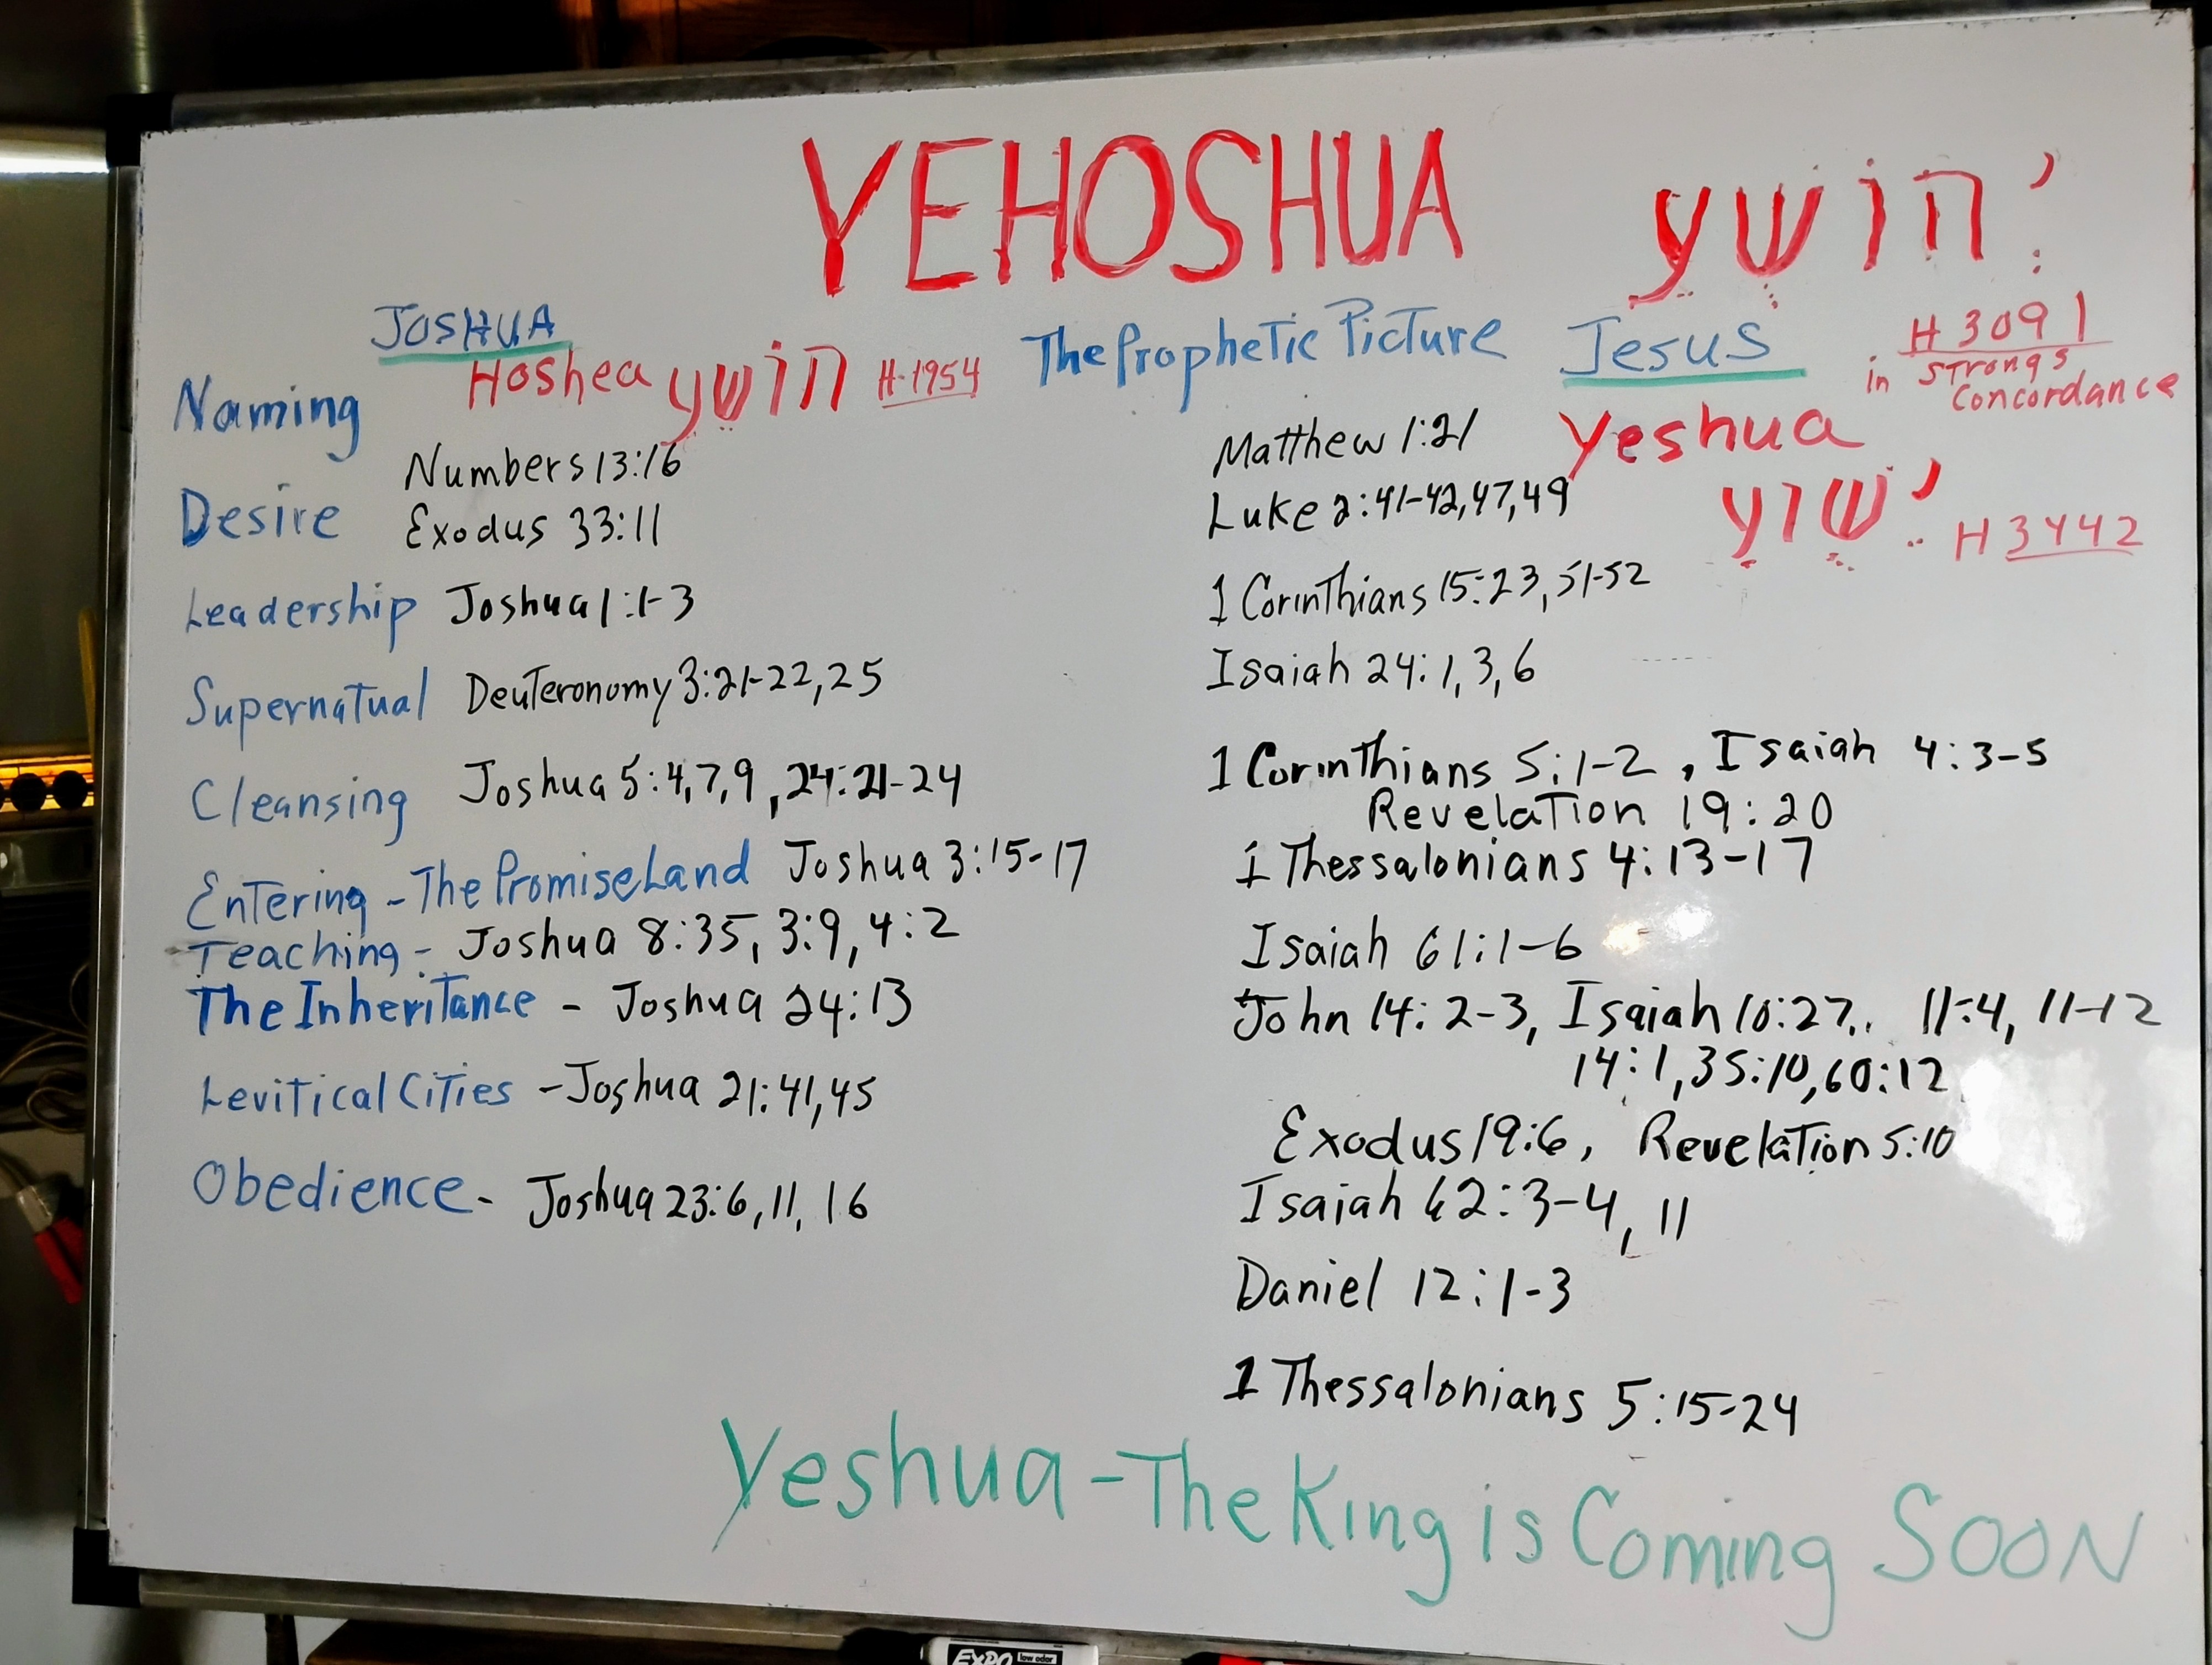 YEHOSHUA יְהוֹשֻׁעַ
JOSHUA The Prophetic Picture Jesus H 3091
in Strongs
Concordance
Naming Hoshea הוֹשֵׁעַ H-1954
Numbers 13:16 Matthew 1:21 Yeshua
Desire Exodus 33:11 Luke 2:41-42,47,49 יֵשׁוּעַ H3442
Leadership Joshua 1:1-3 1 Corinthians 15:23,51-52
Supernatual Deuteronomy 3:21-22,25 Isaiah 24:1,3,6
Cleansing Joshua 5:4,7,9,24:21-24 1 Corinthians 5:1-2, Isaiah 4:3-5
Revelation 19:20
Entering - The Promise Land Joshua 3:15-17 1 Thessalonians 4:13-17
Teaching - Joshua 8:35, 3:9, 4:2 Isaiah 61:1-6
The Inheritance - Joshua 24:13 John 14:2-3, Isaiah 10:27, 11:4, 11-12
14:1,35:10,60:12
Levitical Cities - Joshua 21:41,45 Exodus 19:6, Revelation 5:10
Obedience - Joshua 23:6,11,16 Isaiah 62:3-4, 11
Daniel 12:1-3
1 Thessalonians 5:15-24
Yeshua - The King is Coming SOON
EXPO low odor